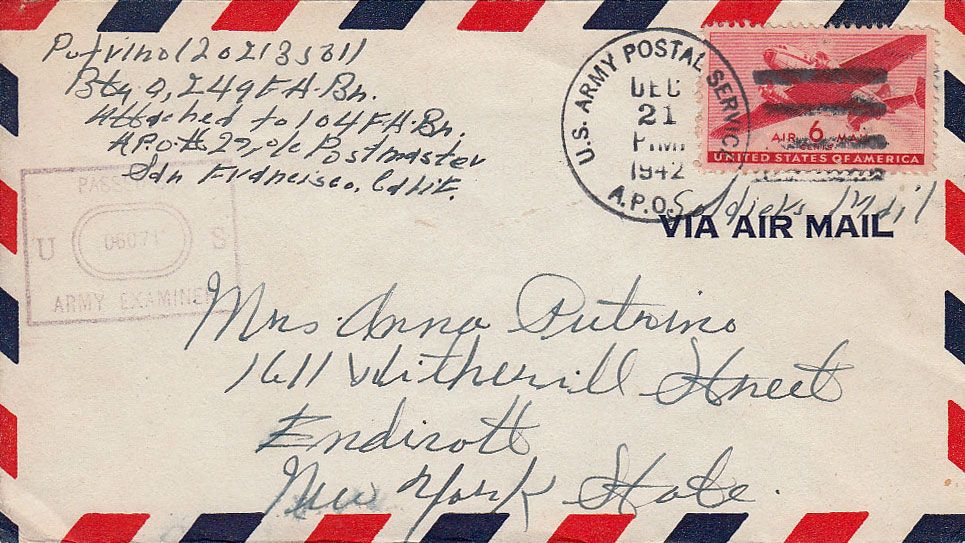 Putrino 1202135311
Bty A, 249 F.A. Bn.
Attached to 104 F.A. Bn.
A.P.O. # 27, c/o Postmaster
San Francisco, Calif.
PASSED
U 06071 S
ARMY EXAMINER
U.S. ARMY POSTAL SERVICE
DEC
21
P.M.
1942
A.P.O.
AIR 6 MAIL
UNITED STATES OF AMERICA
Soldiers Mail
VIA AIR MAIL
Mrs. Anna Putrino
1611 Witherill Street
Endicott
New York State.